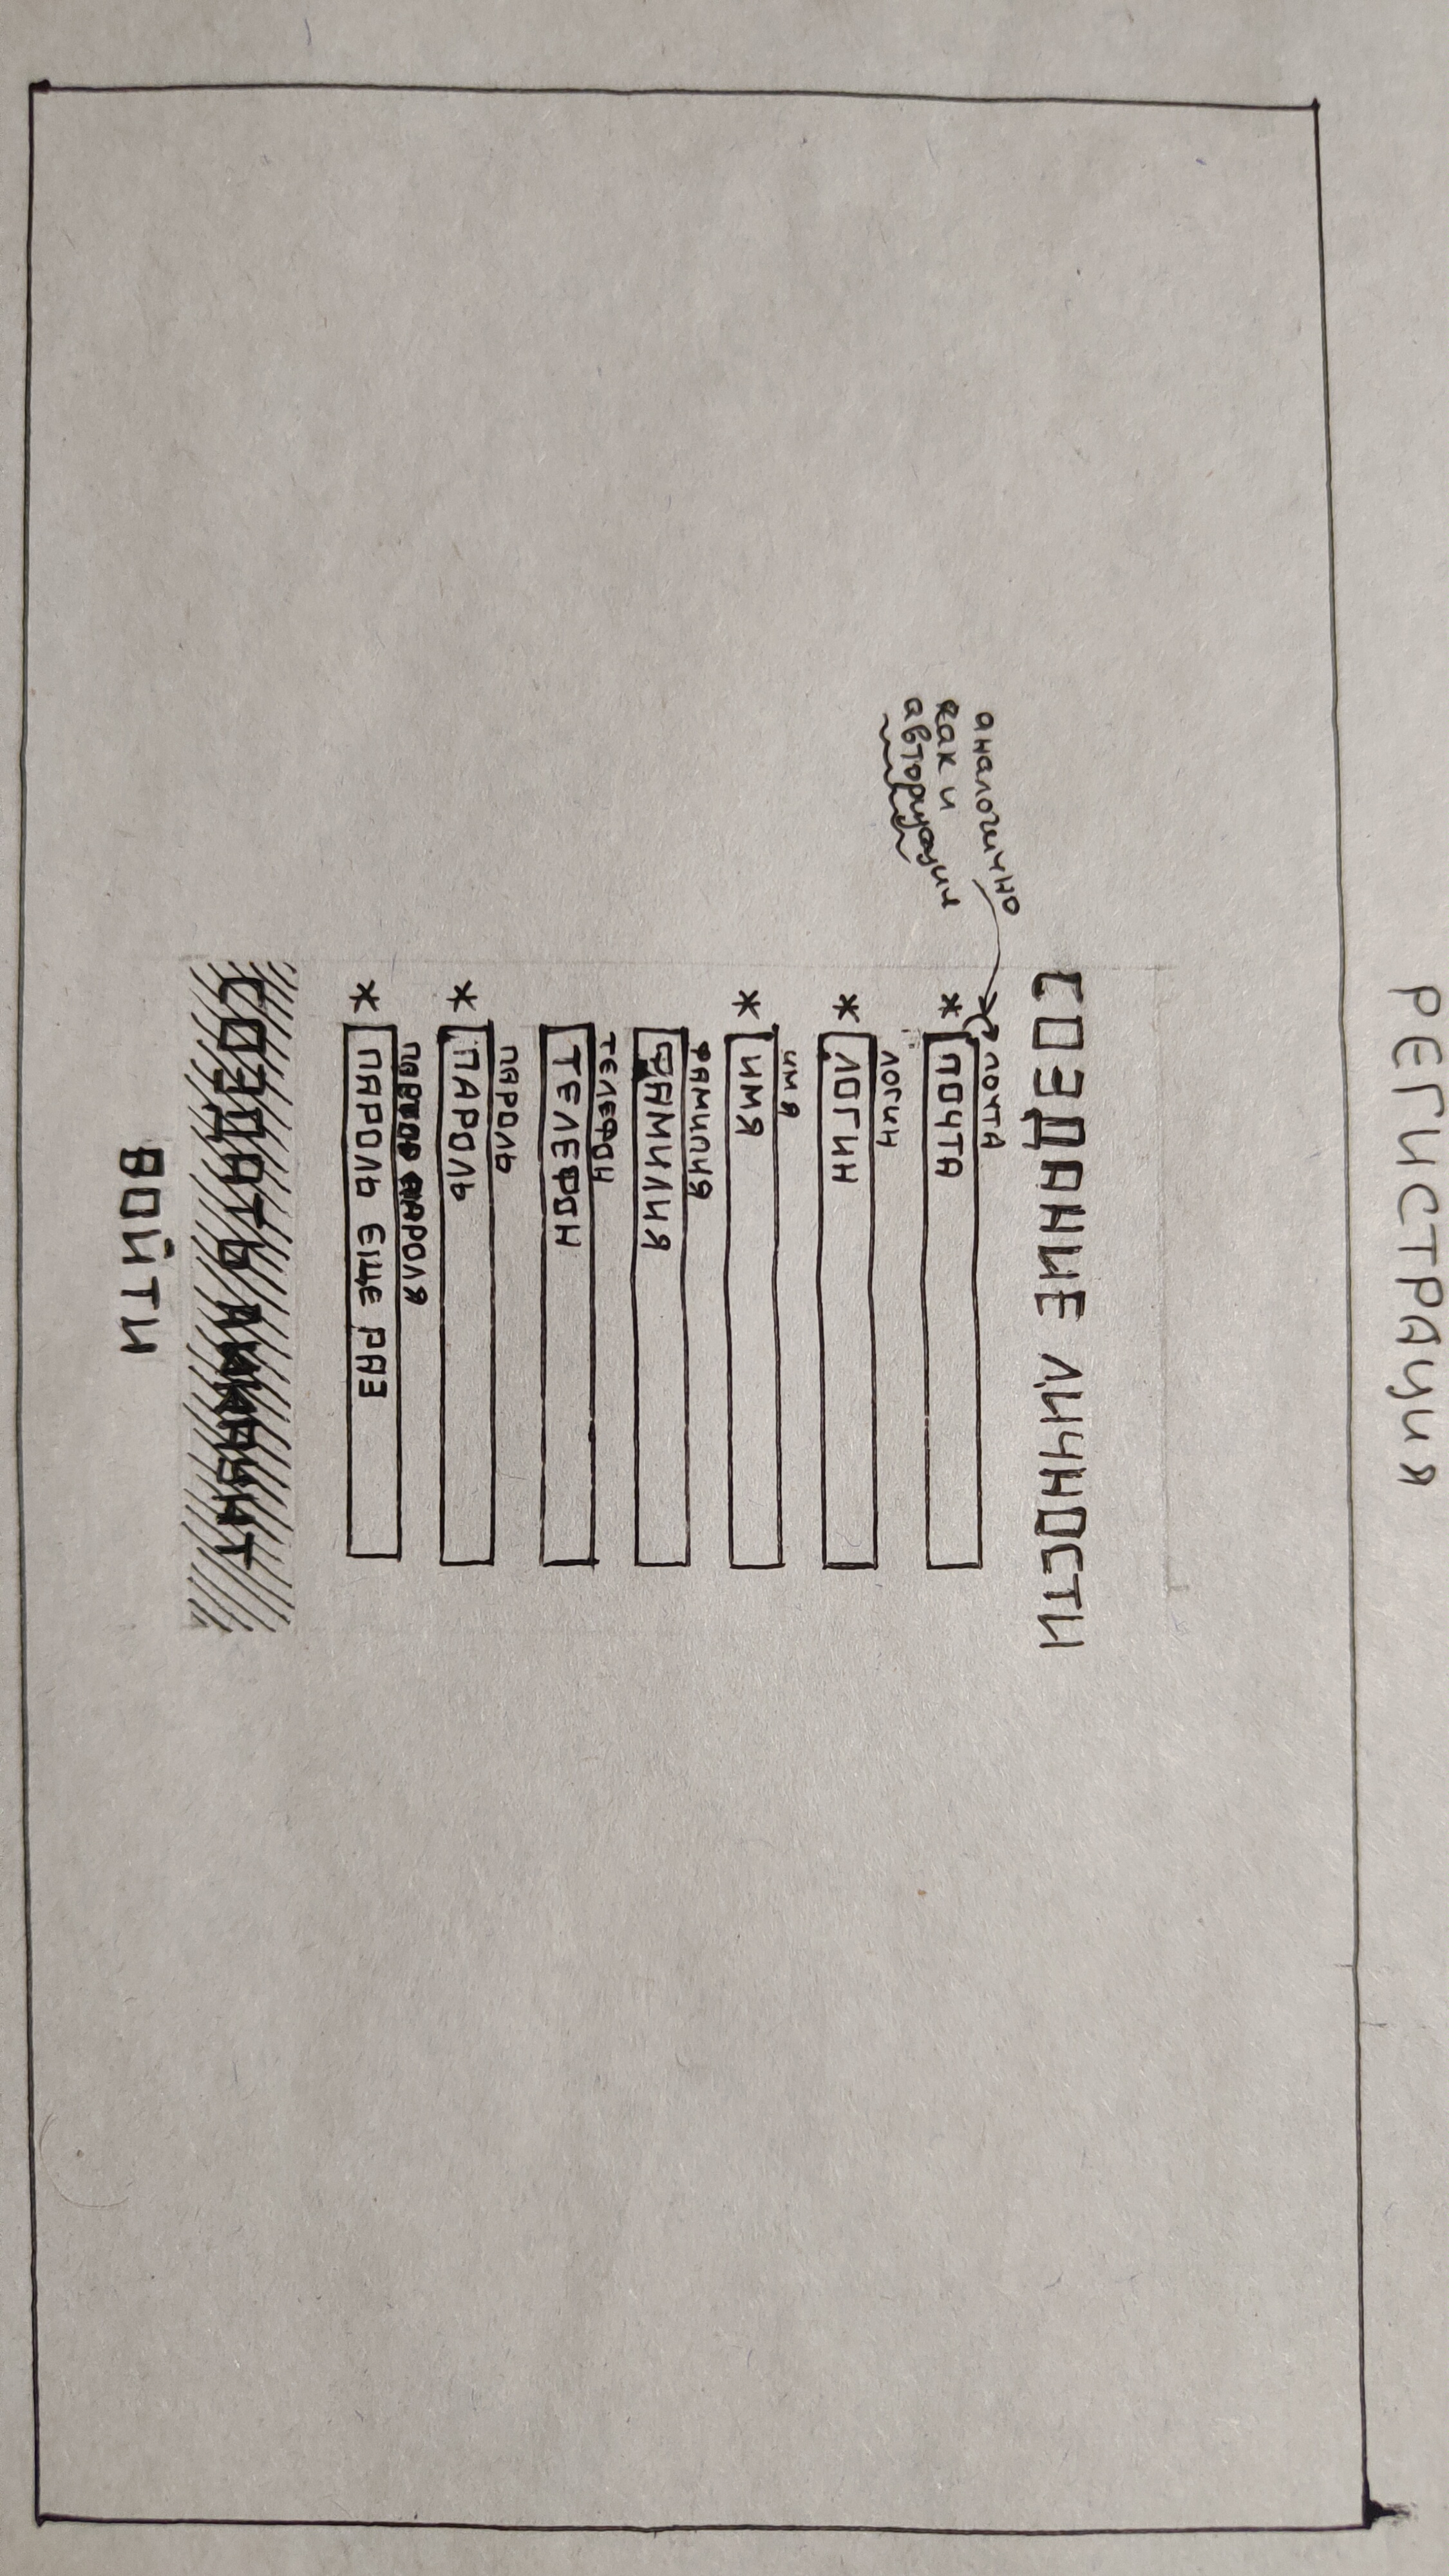 РЕГИСТРАЦИЯ
СОЗДАНИЕ ЛИЧНОСТИ
аналогично
как и
почта
* ПОЧТА
логин
* ЛОГИН
имя
* ИМЯ
ФАМИЛИЯ
ФАМИЛИЯ
ТЕЛЕФОН
ТЕЛЕФОН
ПАРОЛЬ
* ПАРОЛЬ
ПАРОЛЯ
* ПАРОЛЬ ЕЩЕ РАЗ
СОЗДАТЬ АККАУНТ
ВОЙТИ